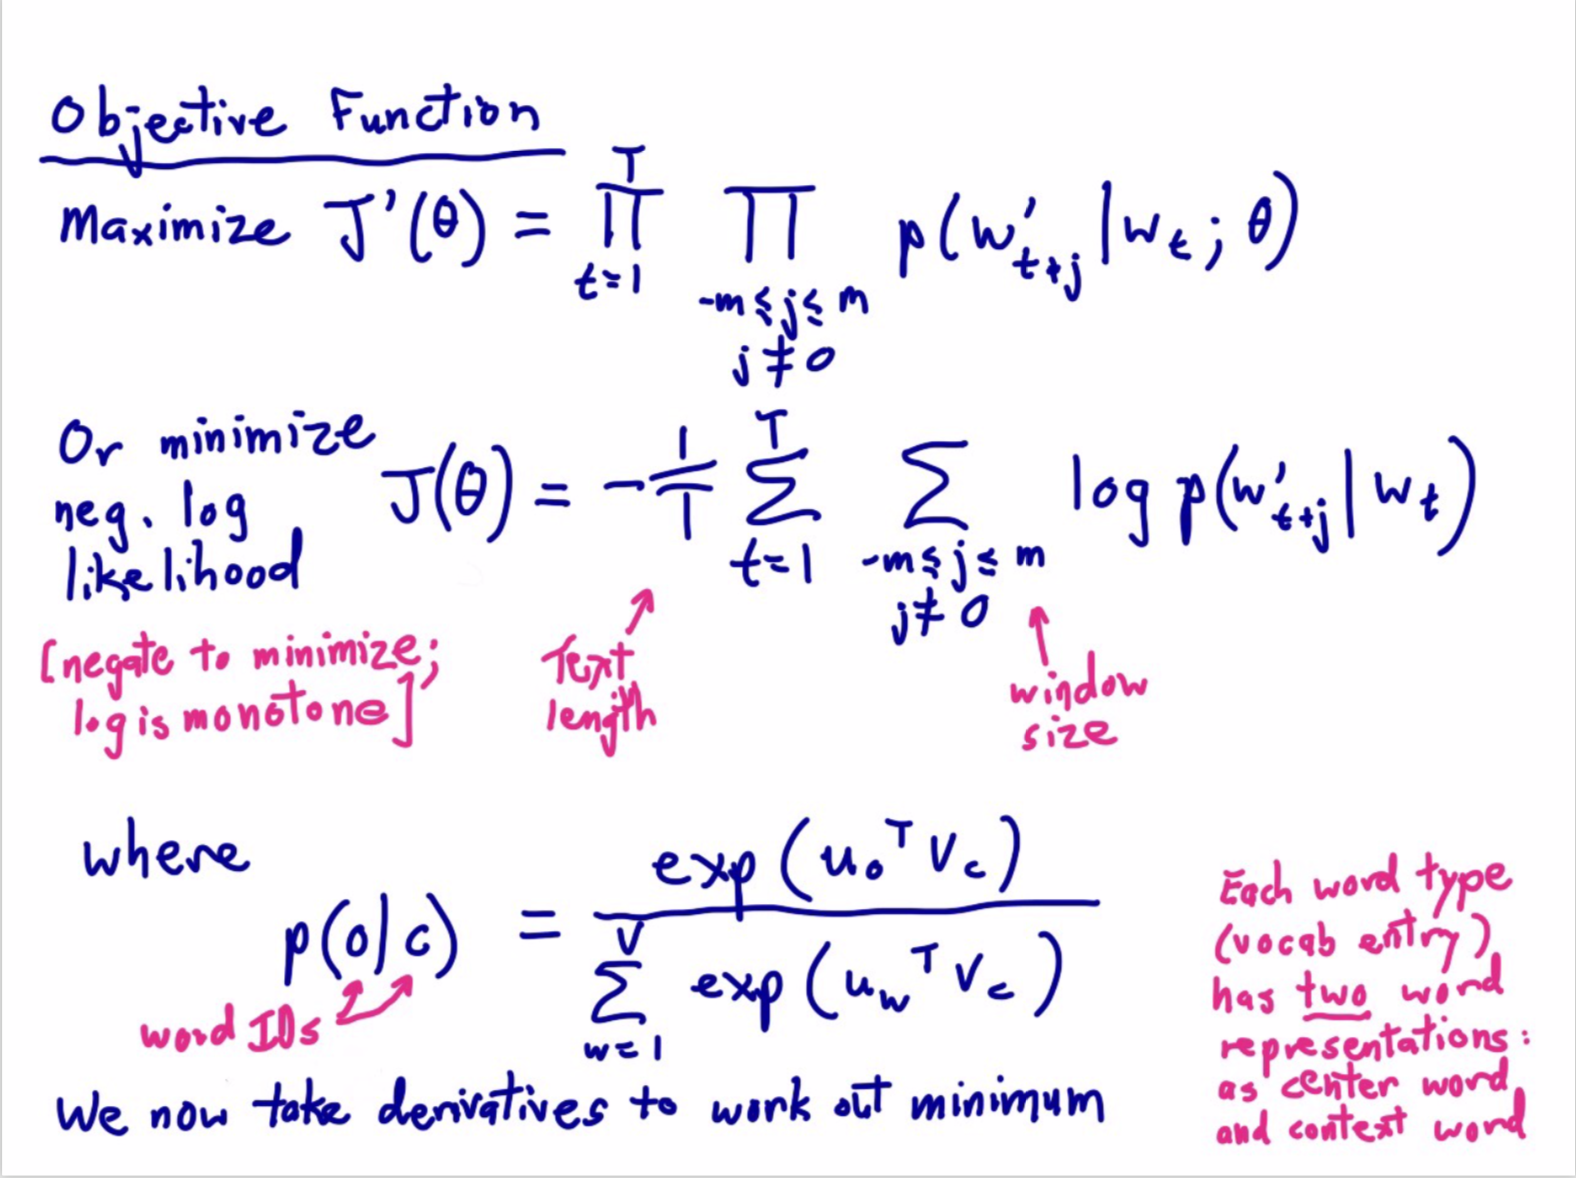 Objective Function
Maximize J'(θ) = ∏_{t=1}^{T} ∏_{-m≤j≤m, j≠0} p(w'_{t+j} | w_t; θ)
Or minimize
neg. log
likelihood
J(θ) = -1/T ∑_{t=1}^{T} ∑_{-m≤j≤m, j≠0} log p(w'_{t+j} | w_t)
[negate to minimize;
log is monotone]
Text
length
window
size
where
p(o|c) = exp(u_o^T v_c) / ∑_{w=1}^{V} exp(u_w^T v_c)
word IDs
Each word type
(vocab entry)
has two word
representations:
as center word
and context word
We now take derivatives to work out minimum